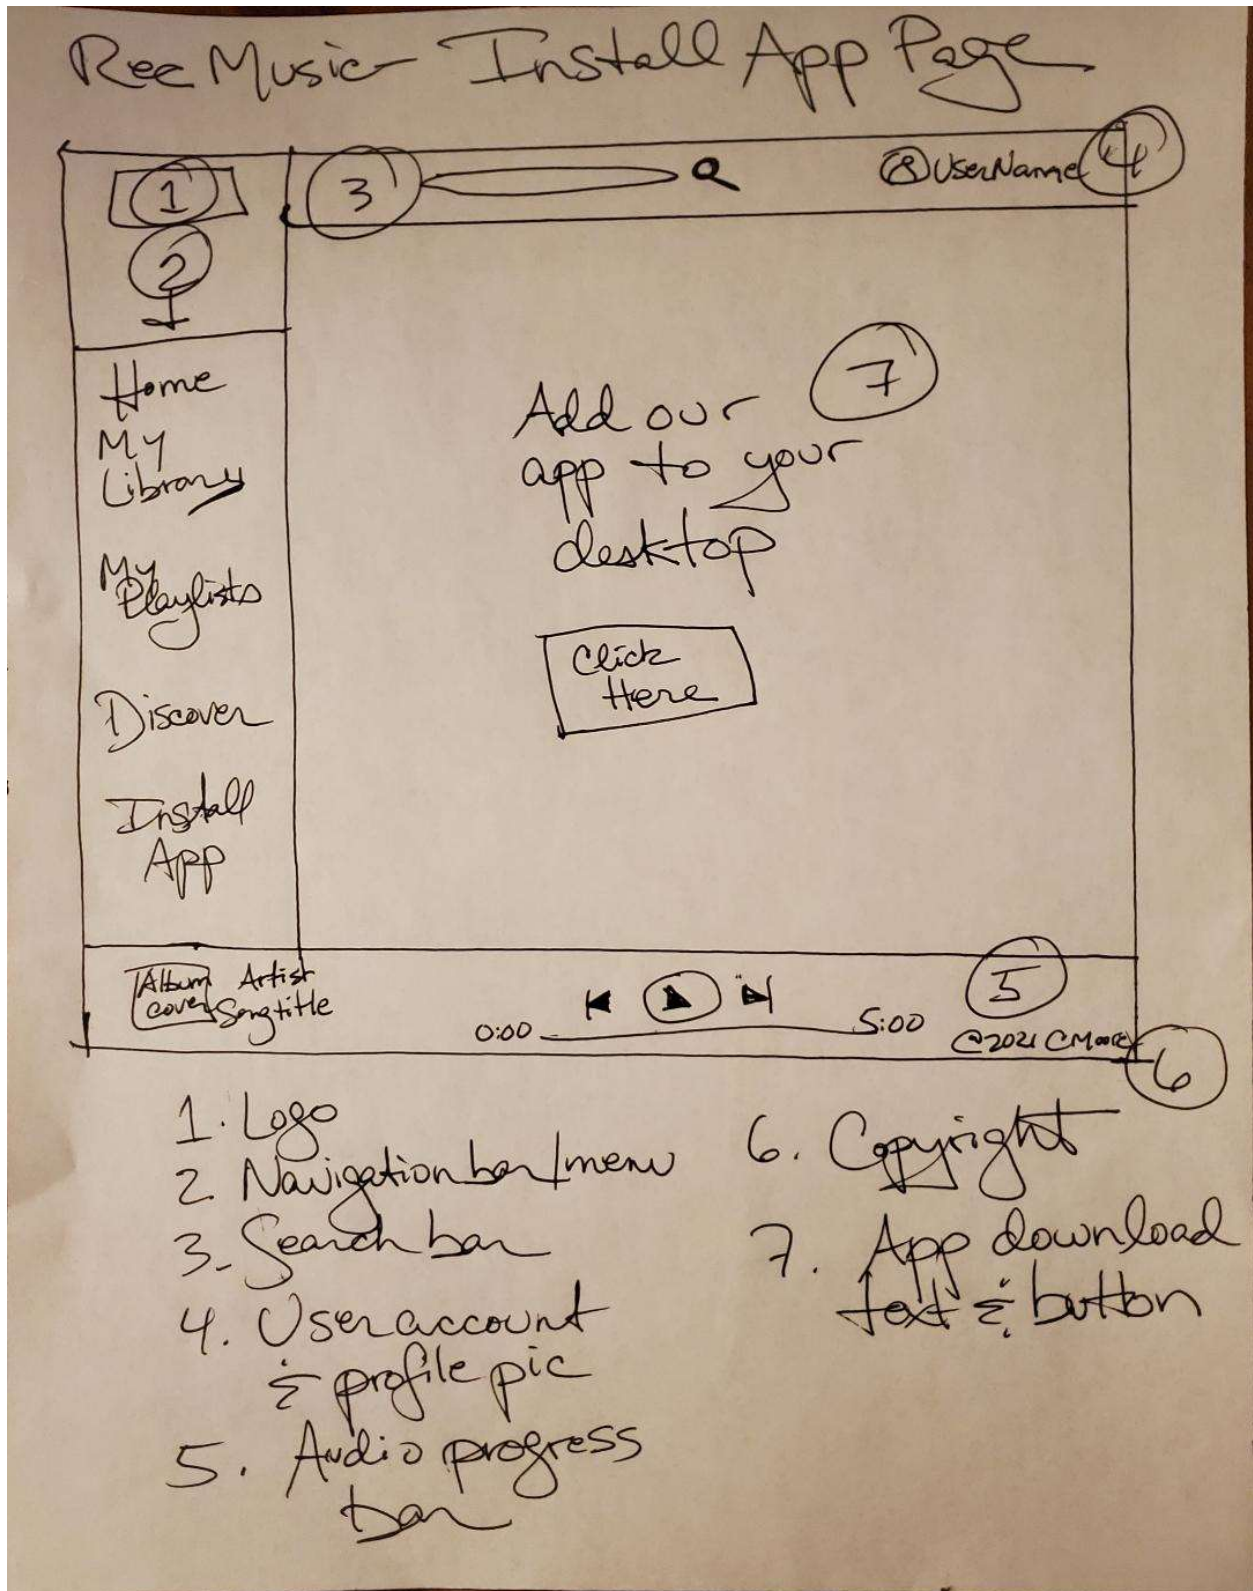 Ree Music - Install App Page
1
3
UserName
4
2
Home
My
Library
My
Playlists
Discover
Install
App
7
Add our
app to your
desktop
Click
Here
Album
cover
Artist
Songtitle
0:00
5:00
5
@2021 CMoore
6
1. Logo
2. Navigation bar/menu
3. Search bar
4. User account
& profile pic
5. Audio progress
bar
6. Copyright
7. App download
text & button